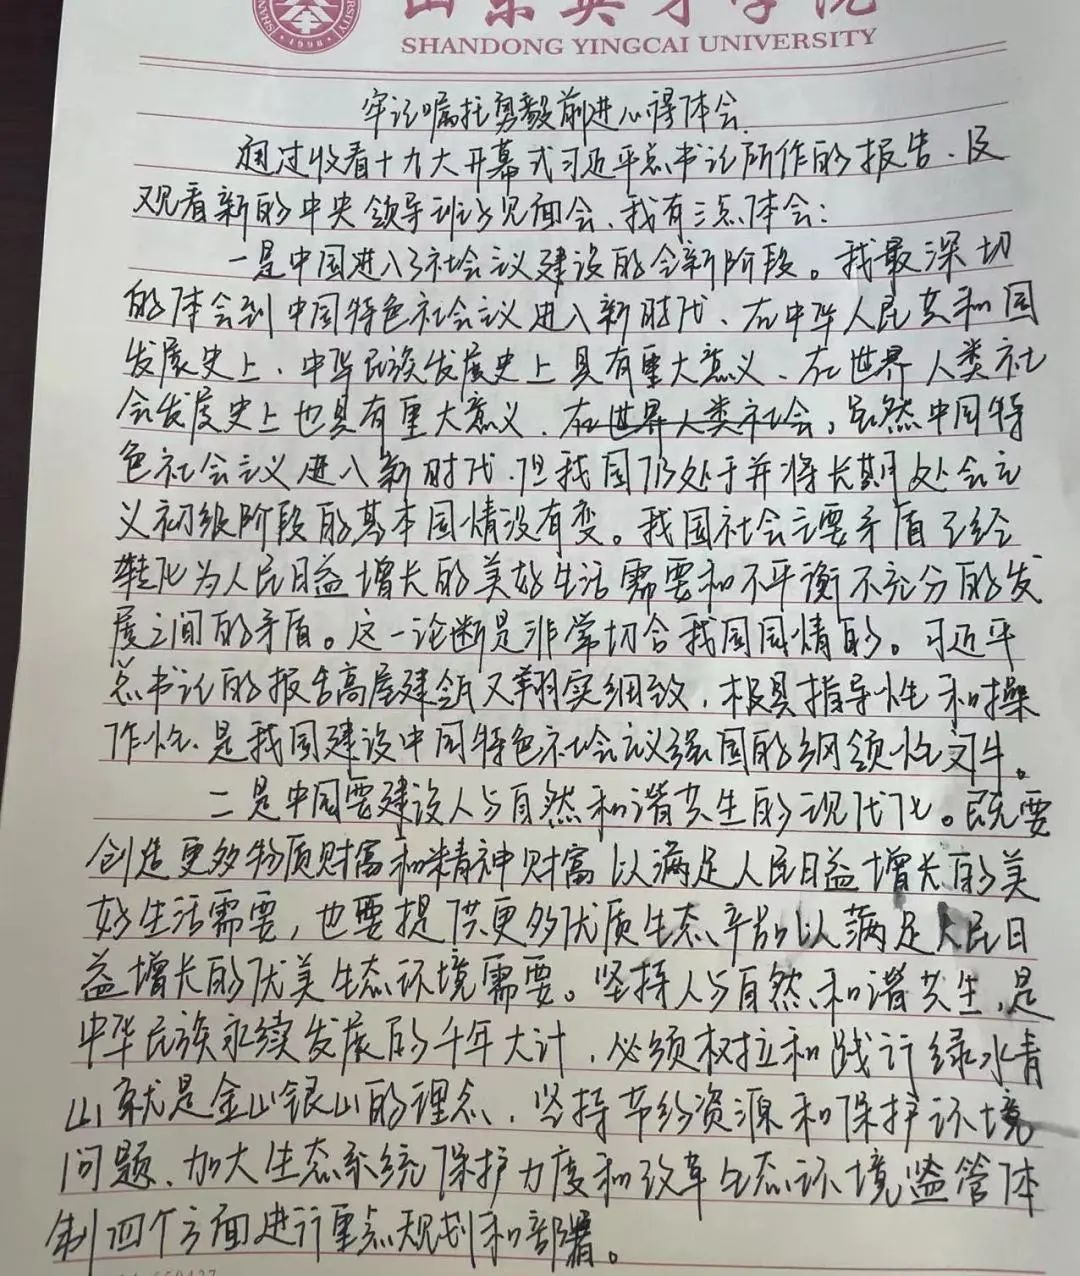 山东英才学院
SHANDONG YINGCAI UNIVERSITY
1998
牢记嘱托勇毅前进心得体会
通过收看十九大开幕式习近平总书记所作的报告、及
观看新的中央领导班子见面会、我有三点体会:
一是中国进入了社会主义建设的全新阶段。我最深切
的体会到中国特色社会主义进入新时代、在中华人民共和国
发展史上、中华民族发展史上具有重大意义、在世界人类社
会发展史上也具有重大意义、在世界人类社会,虽然中国特
色社会主义进入新时代,但我国仍处于并将长期处会主
义初级阶段的基本国情没有变。我国社会主要矛盾已经
转化为人民日益增长的美好生活需要和不平衡不充分的发
展之间的矛盾。这一论断是非常切合我国国情的。习近平
总书记的报告高屋建瓴又翔实细致,极具指导性和操
作性、是我国建设中国特色社会主义强国的纲领性文件。
二是中国要建设人与自然和谐共生的现代化。既要
创造更多物质财富和精神财富以满足人民日益增长的美
好生活需要,也要提供更多优质生态产品以满足人民日
益增长的优美生态环境需要。坚持人与自然和谐共生,是
中华民族永续发展的千年大计,必须树立和践行绿水青
山就是金山银山的理念、坚持节约资源和保护环境
问题、加大生态系统保护力度和改革生态环境监管体
制四个方面进行重点规划和部署。